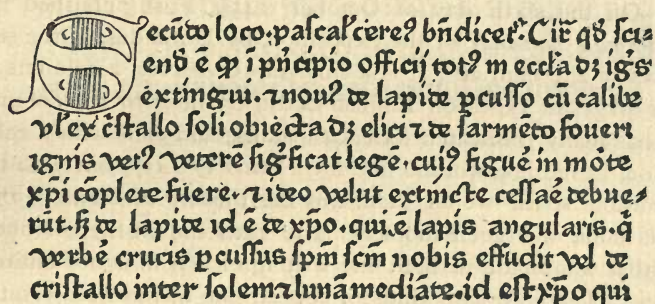 Secūdo loco·pascal' cere⁹ bn̄dicet᷑·Cir̄ qḋ sci⸗
endū ē ꝙ ī pn̄cipio officij tot⁹ in eccl'a dꝫ ig's
extingui·⁊ nou⁹ de lapide pcusso cū calibe
vl' ex c̄stallo soli obiecta dꝫ elici ⁊ de sarmēto foueri
ignis vet⁹ veterē sig'ficat legē·cui⁹ figuē in mōte
xp̄i cōplete fuere·⁊ ideo velut extincte cessaē debue⸗
rūt·ꜩ de lapide id ē de xp̄o·qui ē lapis angularis·q̄
verbē crucis pcussus sp̄m sc̄m nobis effudit vel de
cristallo inter solem⁊lunā mediāte·id est xp̄o qui